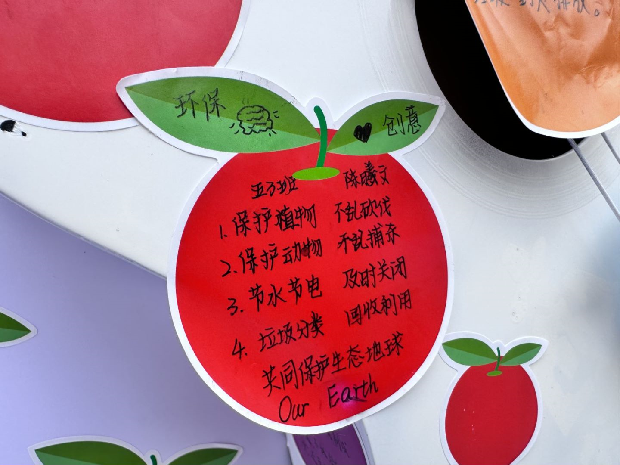 环保
创意
五3班 陈曦文
1.保护植物 不乱砍伐
2.保护动物 不乱捕杀
3.节水节电 及时关闭
4.垃圾分类 回收利用
共同保护生态地球
Our Earth